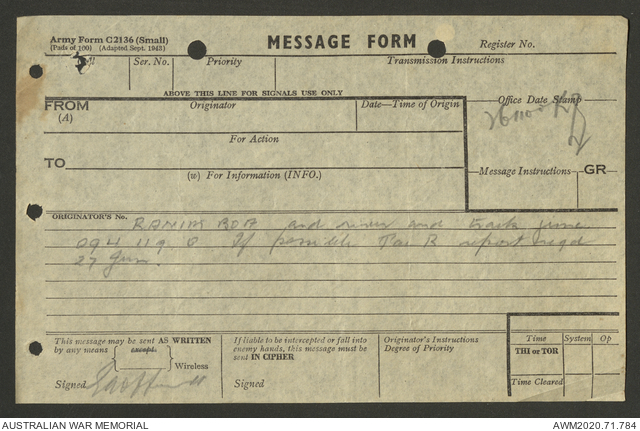 Army Form C2136 (Small)
(Pads of 100) (Adapted Sept. 1943)
MESSAGE FORM
Register No.
Call
Ser. No.
Priority
Transmission Instructions
ABOVE THIS LINE FOR SIGNALS USE ONLY
FROM
(A)
Originator
Date—Time of Origin
Office Date Stamp
For Action
TO
(w) For Information (INFO.)
Message Instructions
GR
ORIGINATOR'S No.
and river and track junc
094 119 0 If possible Tac R report reqd
27 Jun.
This message may be sent AS WRITTEN
by any means
except
Wireless
Signed
If liable to be intercepted or fall into
enemy hands, this message must be
sent IN CIPHER
Signed
Originator's Instructions
Degree of Priority
Time
System
Op
THI or TOR
Time Cleared
AUSTRALIAN WAR MEMORIAL
AWM2020.71.784